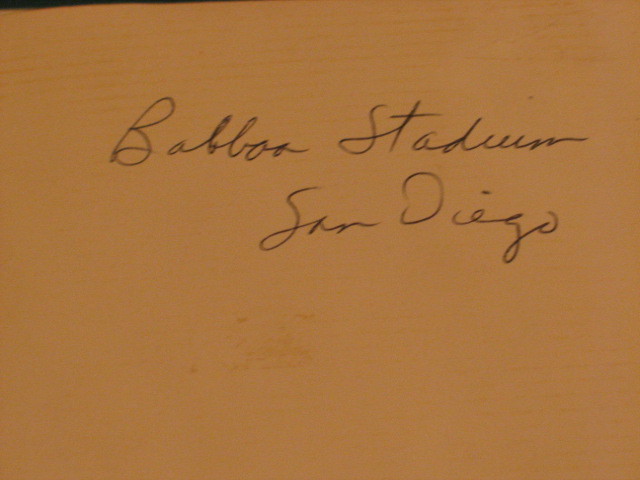 Balboa Stadium
San Diego